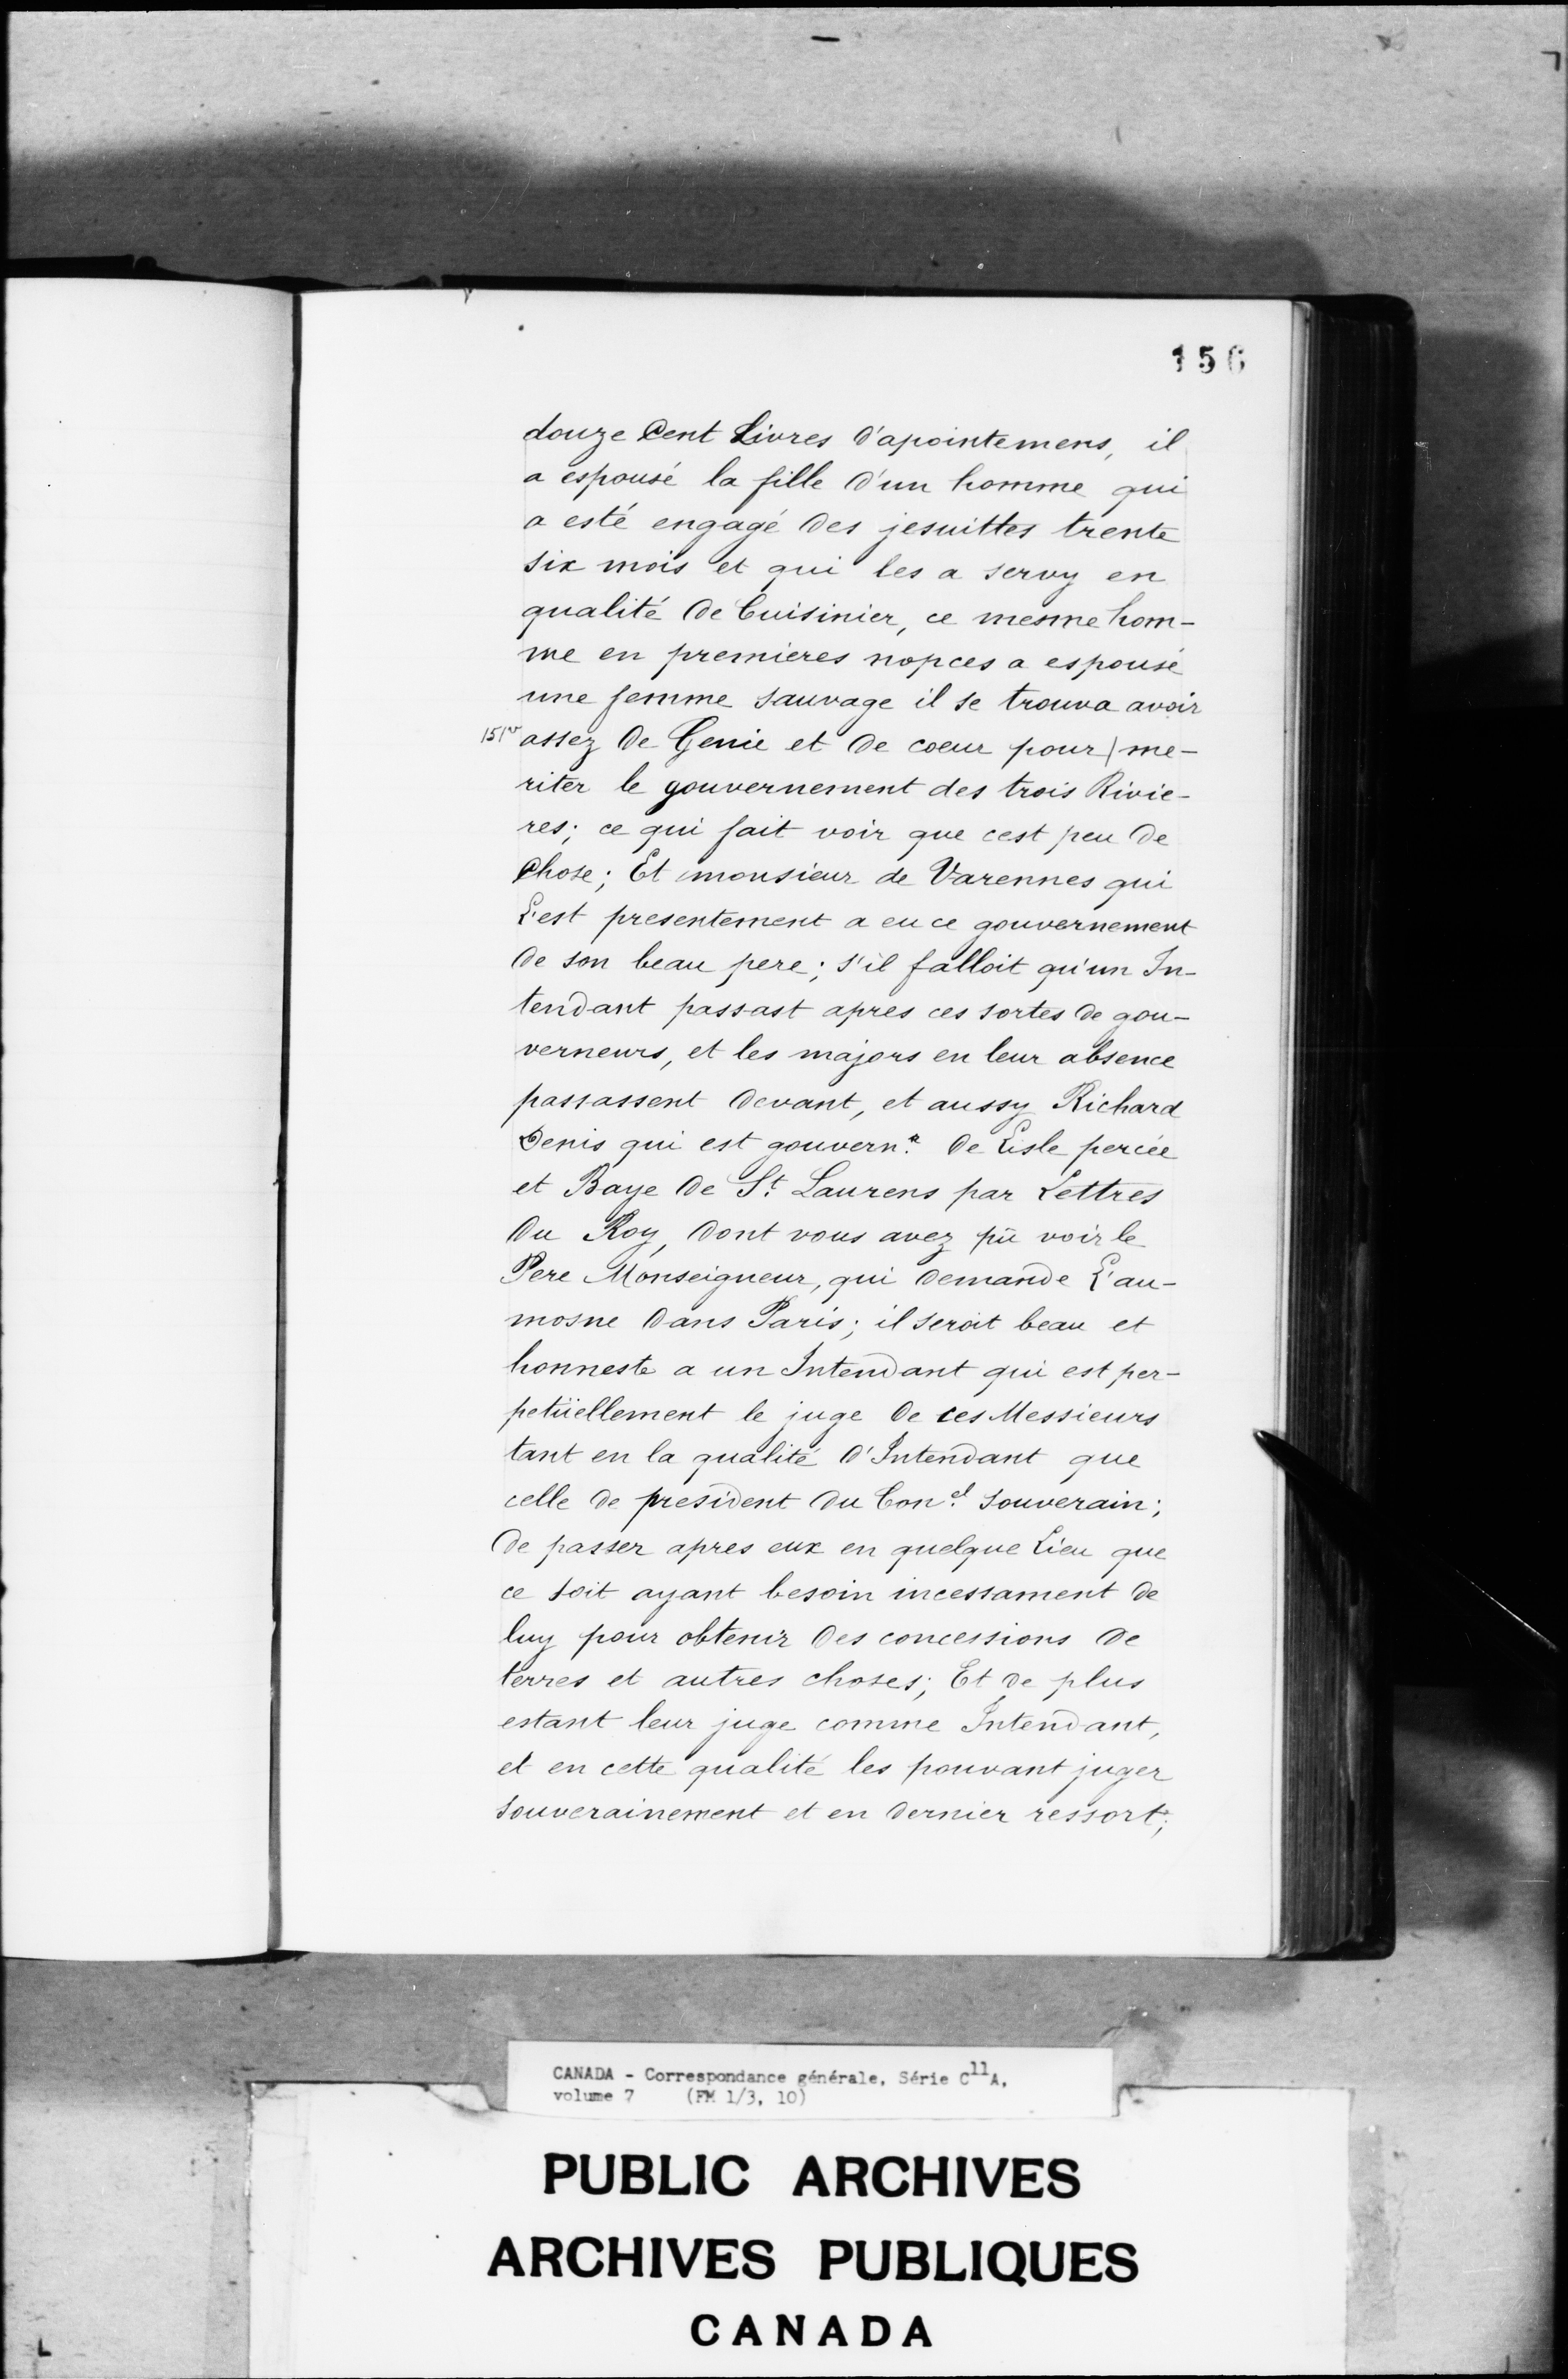 156
douze Cent Livres d'apointemens, il
a espousé la fille d'un homme qui
a esté engagé des jesuittes trente
six mois et qui les a servy en
qualité de Cuisinier, ce mesme hom-
me en premieres nopces a espousé
une femme sauvage il se trouva avoir
151vo assez de Genie et de coeur pour | me-
riter le gouvernement des trois Rivie-
res; ce qui fait voir que cest peu de
chose; Et monsieur de Varennes qui
L'est presentement a eu ce gouvernement
de son beau pere; s'il falloit qu'un In-
tendant passast apres ces sortes de gou-
verneurs, et les majors en leur absence
passassent devant, et aussy Richard
Denis qui est gouvern.r de Lisle percée
et Baye de St. Laurens par Lettres
du Roy, dont vous avez pü voir le
Pere Monseigneur, qui demande L'au-
mosne dans Paris; il seroit beau et
honneste a un Intendant qui est per-
petüellement le juge de ces Messieurs
tant en la qualité d'Intendant que
celle de president du Con.el souverain;
de passer apres eux en quelque Lieu que
ce soit ayant besoin incessament de
luy pour obtenir des concessions de
terres et autres choses; Et de plus
estant leur juge comme Intendant,
et en cette qualité les pouvant juger
souverainement et en dernier ressort;
CANADA - Correspondance générale, Série C11A,
volume 7 (FM 1/3, 10)
PUBLIC ARCHIVES
ARCHIVES PUBLIQUES
CANADA